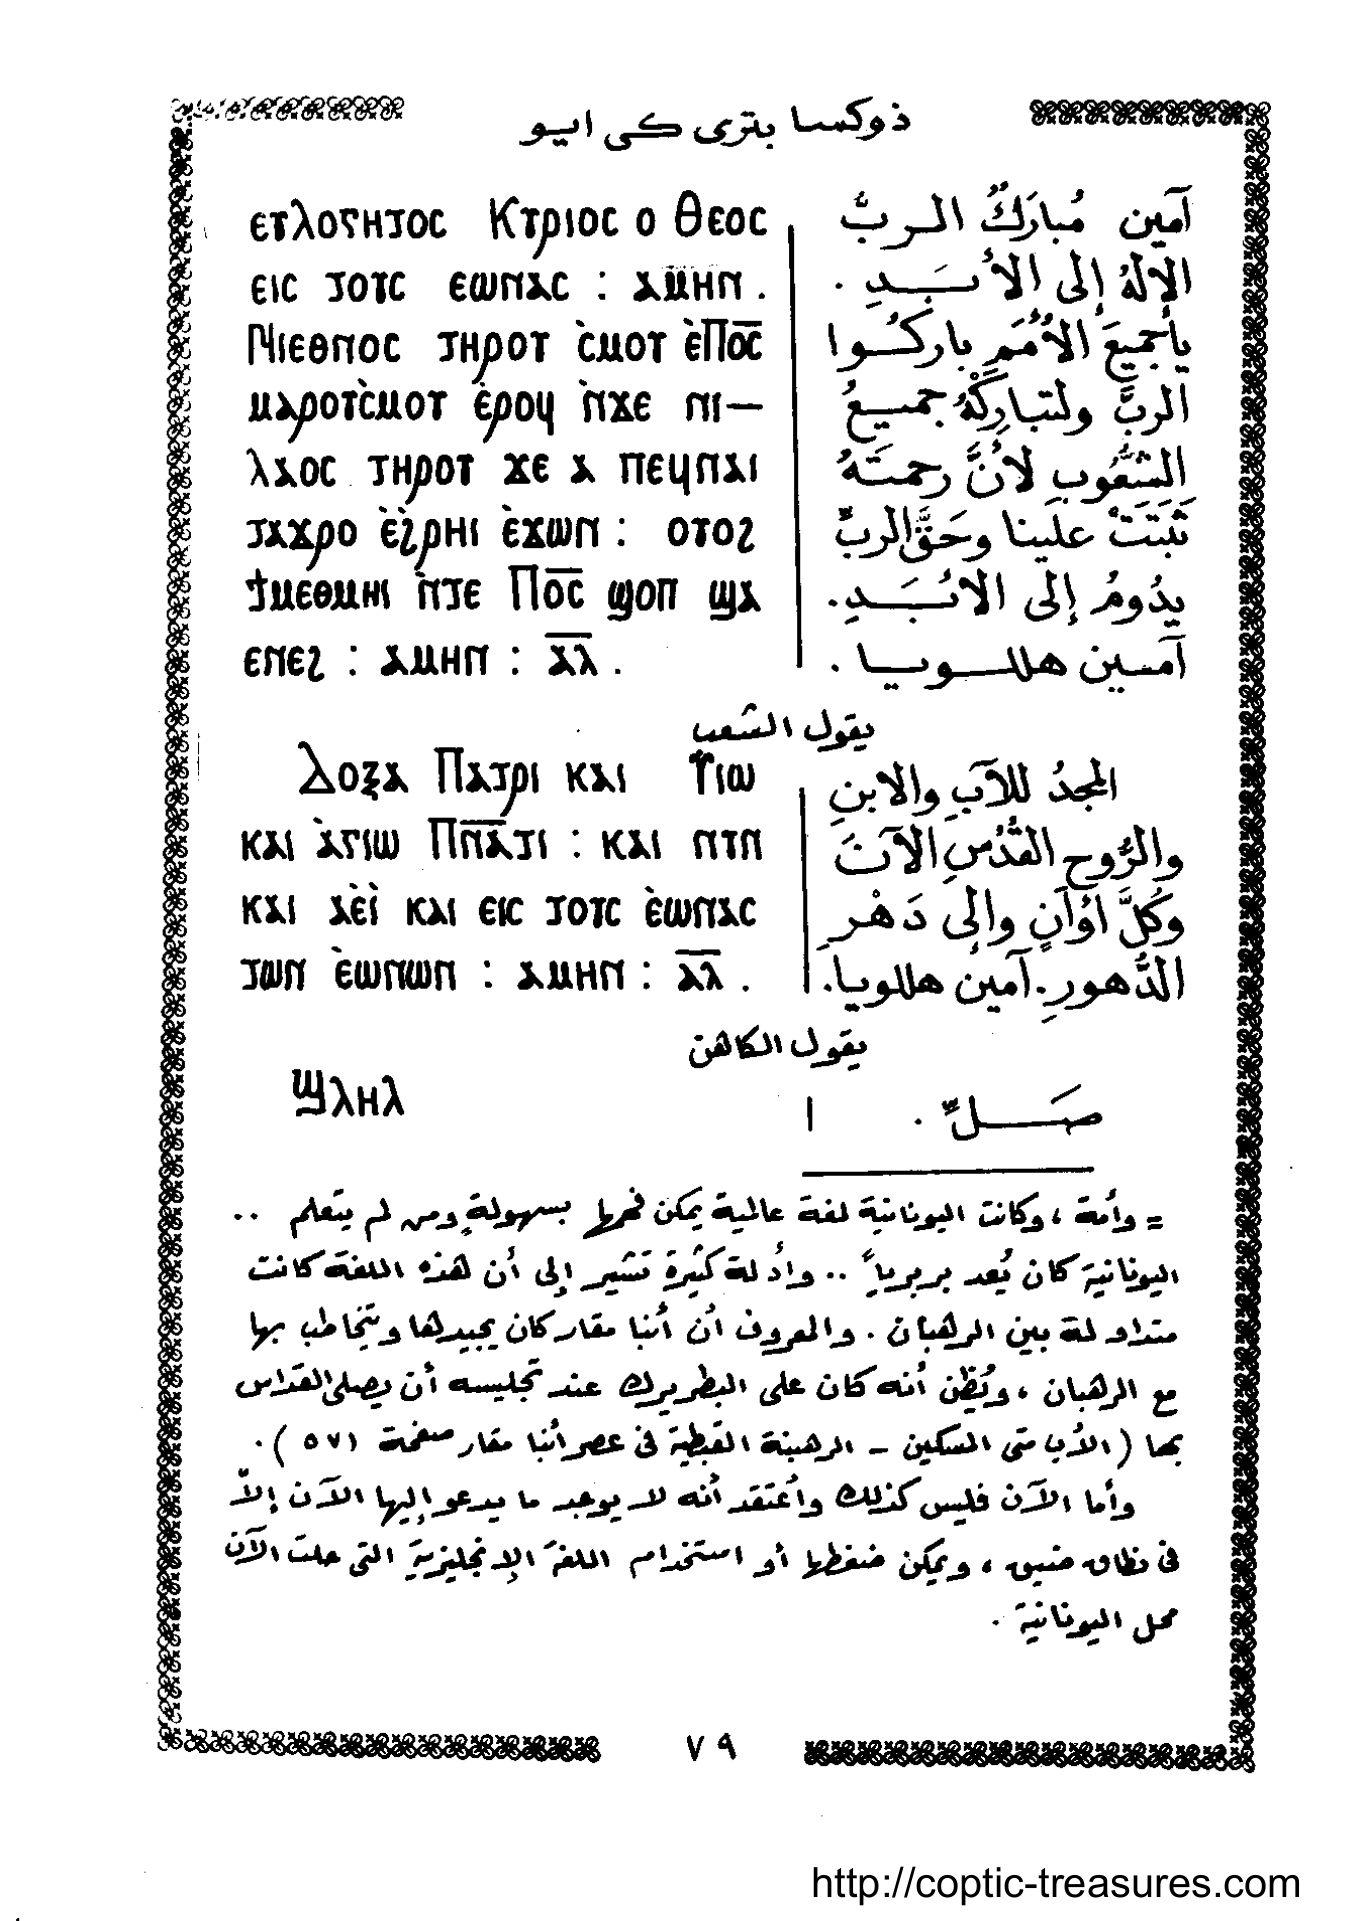 ذوكسا بترى كى ايو
ⲉⲩⲗⲟⲅⲏⲧⲟⲥ Ⲕⲩⲣⲓⲟⲥ ⲟ Ⲑⲉⲟⲥ
ⲉⲓⲥ ⲧⲟⲩⲥ ⲉⲱⲛⲁⲥ : ⲁⲙⲏⲛ .
Ⲛⲓⲉⲑⲛⲟⲥ ⲧⲏⲣⲟⲩ ⲥ̀ⲙⲟⲩ ⲉ̀Ⲡⲟ̅ⲥ̅
ⲙⲁⲣⲟⲩⲥ̀ⲙⲟⲩ ⲉ̀ⲣⲟϥ ⲛ̀ϫⲉ ⲛⲓ—
ⲗⲁⲟⲥ ⲧⲏⲣⲟⲩ ϫⲉ ⲁ ⲡⲉϥⲛⲁⲓ
ⲧⲁϫⲣⲟ ⲉ̀ϩ̀ⲣⲏⲓ ⲉ̀ϫⲱⲛ : ⲟⲩⲟϩ
ϯⲙⲉⲑⲙⲏⲓ ⲛ̀ⲧⲉ Ⲡⲟ̅ⲥ̅ ϣⲟⲡ ϣⲁ
ⲉⲛⲉϩ : ⲁⲙⲏⲛ : ⲁ̅ⲗ̅ .
آمين مُبارَكٌ الربُّ
الإلهُ إلى الأَبَدِ .
يا جميعَ الأُمَمِ باركُوا
الربَّ ولتباركْهُ جميعُ
الشُّعُوبِ لأنَّ رحمتَهُ
ثَبَتَتْ علينا وحَقَّ الربِّ
يدُومُ إلى الأبَدِ.
آمين هللويا .
يقول الشعب
Ⲇⲟⲝⲁ Ⲡⲁⲧⲣⲓ ⲕⲁⲓ Ⲩ̀ⲓⲱ
ⲕⲁⲓ ⲁ̀ⲅⲓⲱ Ⲡⲛ̅ⲁ̅ⲧⲓ : ⲕⲁⲓ ⲛⲩⲛ
ⲕⲁⲓ ⲁⲉ̀ⲓ̀ ⲕⲁⲓ ⲉⲓⲥ ⲧⲟⲩⲥ ⲉ̀ⲱⲛⲁⲥ
ⲧⲱⲛ ⲉ̀ⲱⲛⲱⲛ : ⲁⲙⲏⲛ : ⲁ̅ⲗ̅ .
المجدُ للآبِ والابنِ
والرُّوحِ القُدُسِ الآنَ
وكُلَّ أوَانٍ وإلى دَهْرِ
الدُّهورِ. آمين هللويا.
يقول الكاهن
Ϣⲗⲏⲗ
صَلِّ .
= وأمة ، وكانت اليونانية لغة عالية يمكن فهمها بسهولةٍ ومن لم يتعلم ..
اليونانية كان يُعد بربرياً .. وأدلة كثيرة تشير إلى أن هذه اللغة كانت
متداولة بين الرهبان . والمعروف أن أنبا مقار كان يجيدها ويتخاطب بها
مع الرهبان ، ويُظن أنه كان على البطريرك عند تجليسه أن يصلى القداس
بها ( الأب متى المسكين - الرهبنة القبطية فى عصر أنبا مقار صفحة ٥٧١ ) .
وأما الآن فليس كذلك وأعتقد أنه لا يوجد ما يدعو إليها الآن إلاَّ
فى نطاق ضيق ، ويمكن ضغطها أو استخدام اللغة الإنجليزية التى حلت الآن
محل اليونانية .
٧٩
http://coptic-treasures.com